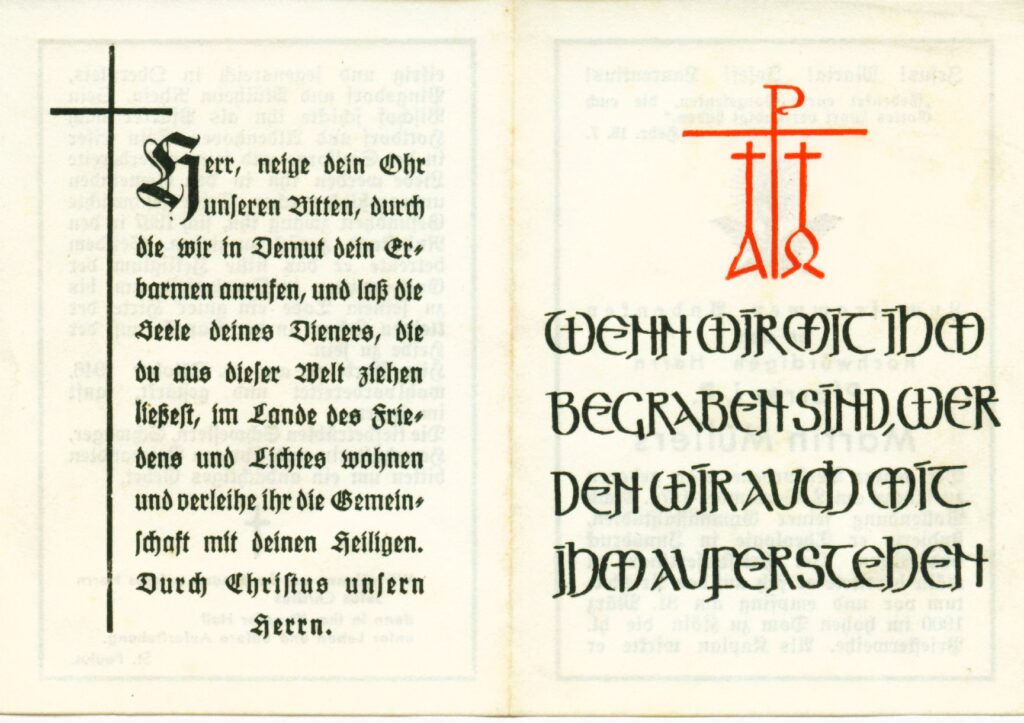 Herr, neige dein Ohr
unseren Bitten, durch
die wir in Demut dein Er-
barmen anrufen, und laß die
Seele deines Dieners, die
du aus dieser Welt ziehen
ließest, im Lande des Frie-
dens und Lichtes wohnen
und verleihe ihr die Gemein-
schaft mit deinen Heiligen.
Durch Christus unsern
Herrn.
P
A Ω
WENN WIR MIT IHM
BEGRABEN SIND, WER
DEN WIR AUCH MIT
IHM AUFERSTEHEN